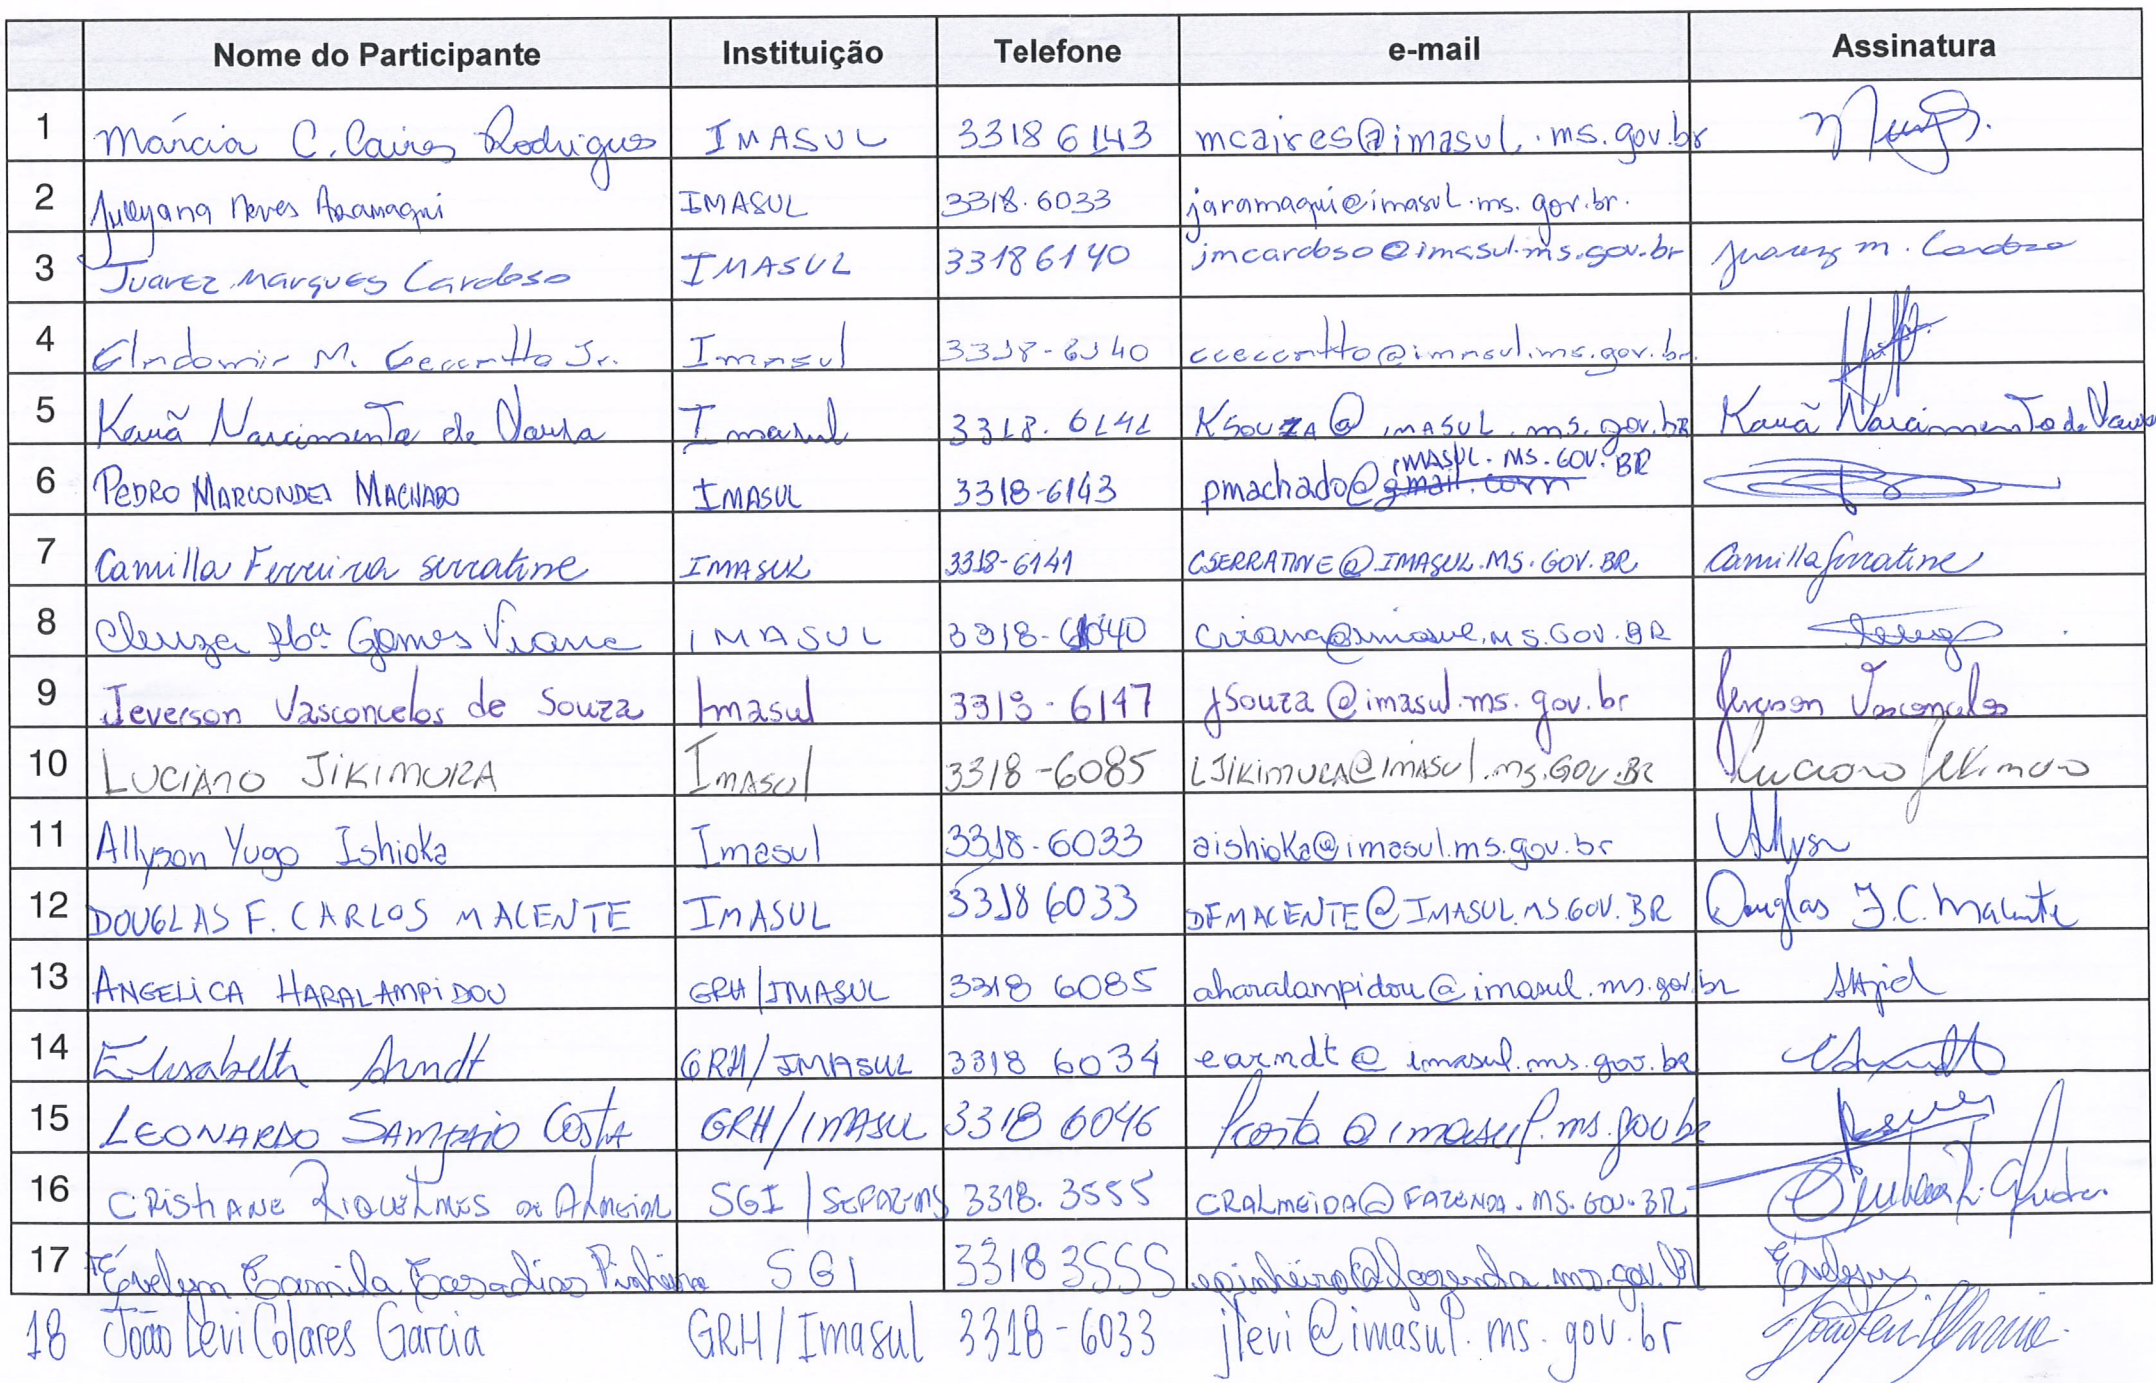 Nome do Participante Instituição Telefone e-mail Assinatura
1 Márcia C. Caires Rodrigues IMASUL 3318 6143 mcaires@imasul.ms.gov.br
2 Jullyana Neves Aramaqui IMASUL 3318.6033 jaramaqui@imasul.ms.gov.br.
3 Juarez Marques Cardoso IMASUL 33186140 jmcardoso@imasul.ms.gov.br Juarez M. Cardoso
4 M. Ceccatto Jr. Imasul 3318-6140 @imasul.ms.gov.br.
5 Kauã Nascimento de Souza Imasul 3318.6141 KSOUZA@IMASUL.ms.gov.bR Kauã Nascimento de Souza
6 PEDRO MARCONDES MACHADO IMASUL 3318-6143 pmachado@gmail.com IMASUL.MS.GOV.BR
7 Camilla Ferreira Serratine IMASUL 3318-6141 CSERRATINE@IMASUL.MS.GOV.BR Camilla Serratine
8 Cleuza Gomes Viana IMASUL
9 Jeverson Vasconcelos de Souza Imasul 3318-6147 jsouza@imasul.ms.gov.br Jeverson Vasconcelos
10 LUCIANO JIKIMURA Imasul 3318-6085 LJIKIMURA@IMASUL.MS.GOV.BR Luciano Jikimura
11 Allyson Yugo Ishioka Imasul 3318-6033 aishioka@imasul.ms.gov.br
12 DOUGLAS F. CARLOS MACENTE IMASUL 3318 6033 DFMACENTE@IMASUL.MS.GOV.BR Douglas F.C. Macente
13 ANGELICA HARALAMPIDOU GRH/IMASUL 3318 6085 aharalampidou@imasul.ms.gov.br
14 Elisabeth Arndt GRH/IMASUL 3318 6034 earndt@imasul.ms.gov.br
15 LEONARDO SAMPAIO COSTA GRH/IMASUL 3318 6046 lcosta@imasul.ms.gov.br
16 CRISTIANE RIQUELMES DE ALMEIDA SGI/SEFAZ-MS 3318.3555 CRALMEIDA@FAZENDA.MS.GOV.BR
17 Évelyn Camila Pinheiro SGI 3318 3555 epinheiro@fazenda.ms.gov.br Évelyn
18 João Levi Colares Garcia GRH/Imasul 3318-6033 jlevi@imasul.ms.gov.br